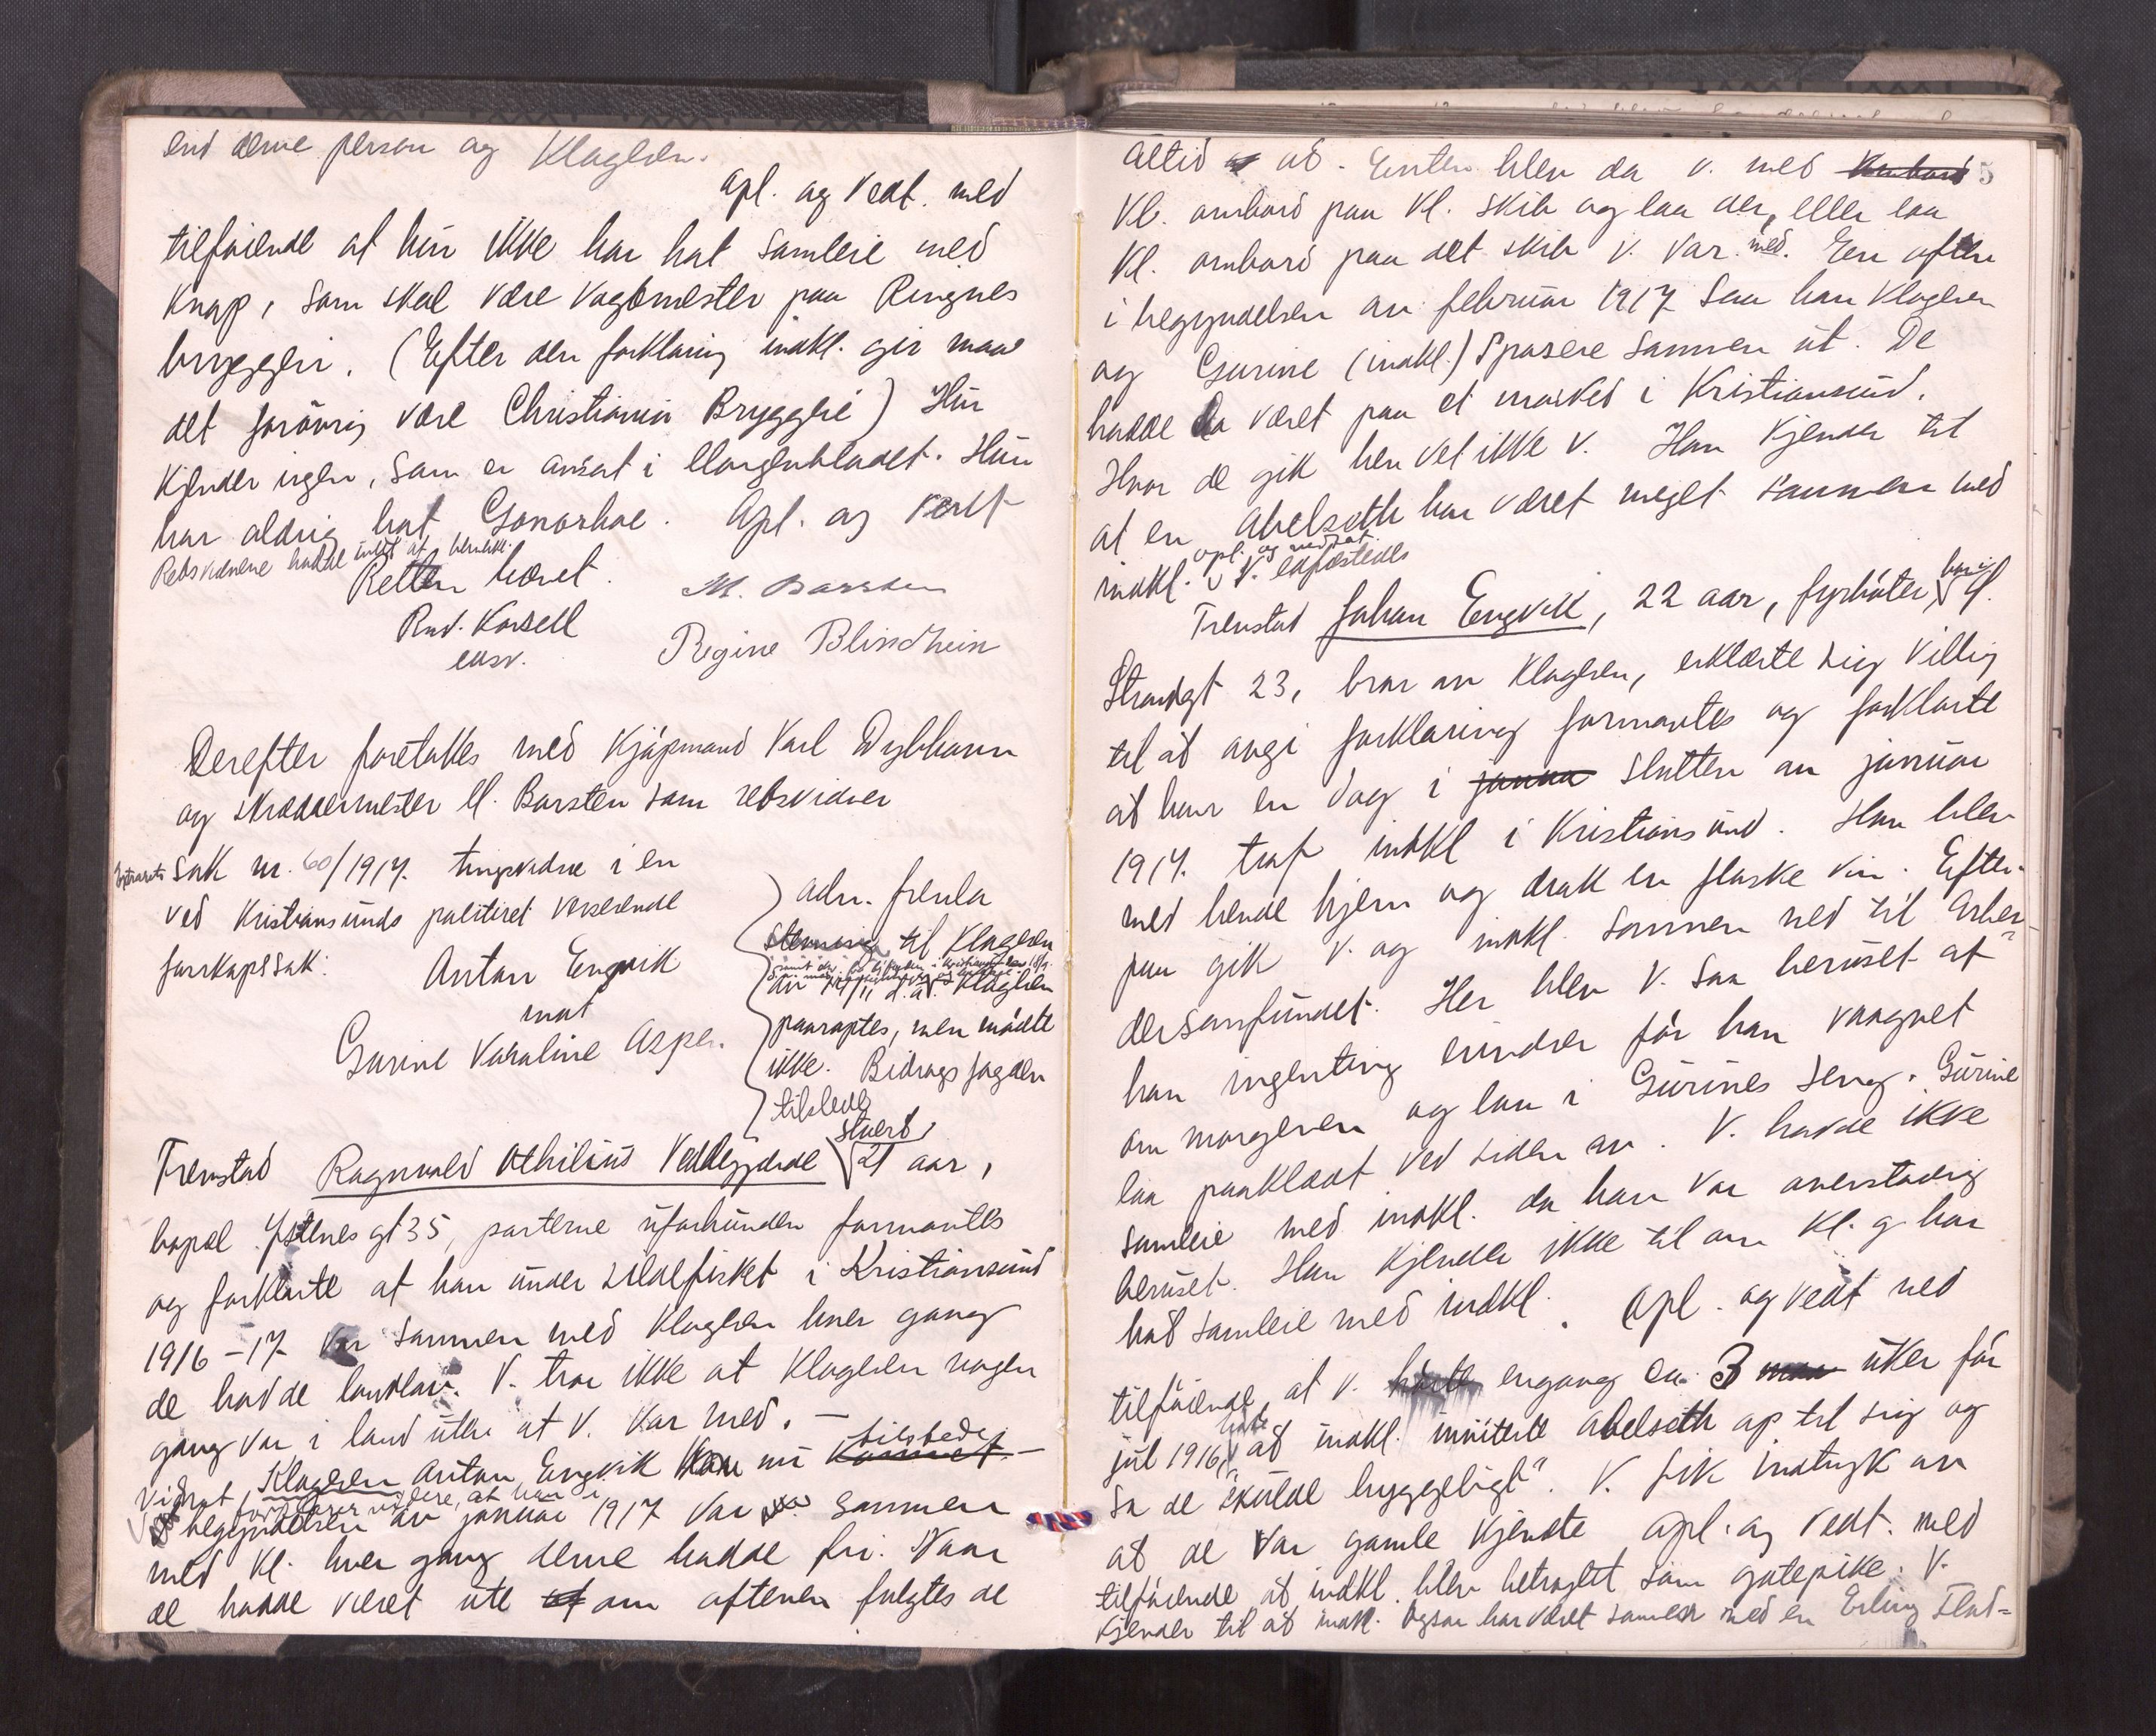 end denne person og Klageren.
Opl. og vedt. med
tilføiende at hun ikke har hat samleie med
Knap, som skal være vagtmester paa Ringnes
bryggeri. (Efter den forklaring indkl. gir maa
det forøvrig være Christiania Bryggeri) Hun
kjender ingen, som er ansat i Morgenbladet. Hun
har aldrig hat Gonorhoe. Opl. og vedt
Retsvidnerne hadde intet at bemerke.
Retten hævet.
M. Barsten
Rud. Korsell
Regine Blindheim
Derefter foretokes med Kjøpmand Karl Dybhavn
og skræddermester M. Barsten som retsvidner
Extrarets sak nr. 60/1917. tingsvidne i en
ved Kristiansunds politiret verserende
farskapssak:
Anton Engvik
mot
Gurine Vakaline Aspen.
adm. fremla
stevning til Klageren
av 14/11 d.a. Klageren
paaroptes, men mødte
ikke. Bidragsfogden
tilstede
Fremstod Ragnvald Othilius Veddegjerde 21 aar,
stuert,
bopæl Ystenes gt 35, parterne uforbunden formantes
og forklarte at han under sildefisket i Kristiansund
1916-17 var sammen med Klageren hver gang
de hadde landlov. V. tror ikke at Klageren nogen
gang var i land uten at V. var med. –
Vidnet, Klageren Anton Engvik kom nu Kommet tilstede –
forklarer videre, at han i
begyndelsen av januar 1917 var sammen
med Kl. hver gang denne hadde fri. Naar
de hadde været ute at om aftenen fulgtes de
altid ad. Enten blev da V. med ombord 5
Kl. ombord paa Kl. skib og laa der, eller laa
Kl. ombord paa det skib V. var med. En aften
i begyndelsen av februar 1917 saa han Klageren
og Gurine (indkl.) spasere sammen ut. De
hadde da været paa et marked i Kristiansund.
Hvor de gik hen vet ikke V. Han kjender til
at en Abelseth har været meget sammen med
indkl. opl. og vedtat. V. edfæstedes
Fremstod Johan Engvik, 22 aar, fyrbøter,
Strandgt 23, bror av Klageren, erklærte sig villig
til at avgi forklaring formantes og forklarte
at han en dag i janua slutten av januar
1917. traf indkl i Kristiansund. Han blev
med hende hjem og drak en flaske vin. Efter-
paa gik V. og indkl. sammen ned til Arbei-
dersamfundet. Her blev V. saa beruset at
han ingenting erindrer før han vaagnet
om morgenen og laa i Gurines seng. Gurine
laa paaklædt ved siden av. V. hadde ikke
samleie med indkl. da han var overstadig
beruset. Han kjender ikke til om Kl. g har
hat samleie med indkl. Opl. og vedt med
tilføiende, at V. hørte engang ca. 3 uker før
jul 1916, at indkl. inviterte Abelseth op til sig og
sa de "skulde hyggeligt". V. fik indtryk av
at de var gamle kjendte Opl. og vedt. med
tilføiende at indkl. blev betragtet som gatepike. V.
kjender til at indkl. ogsaa har været sammen med en Erling Flat=